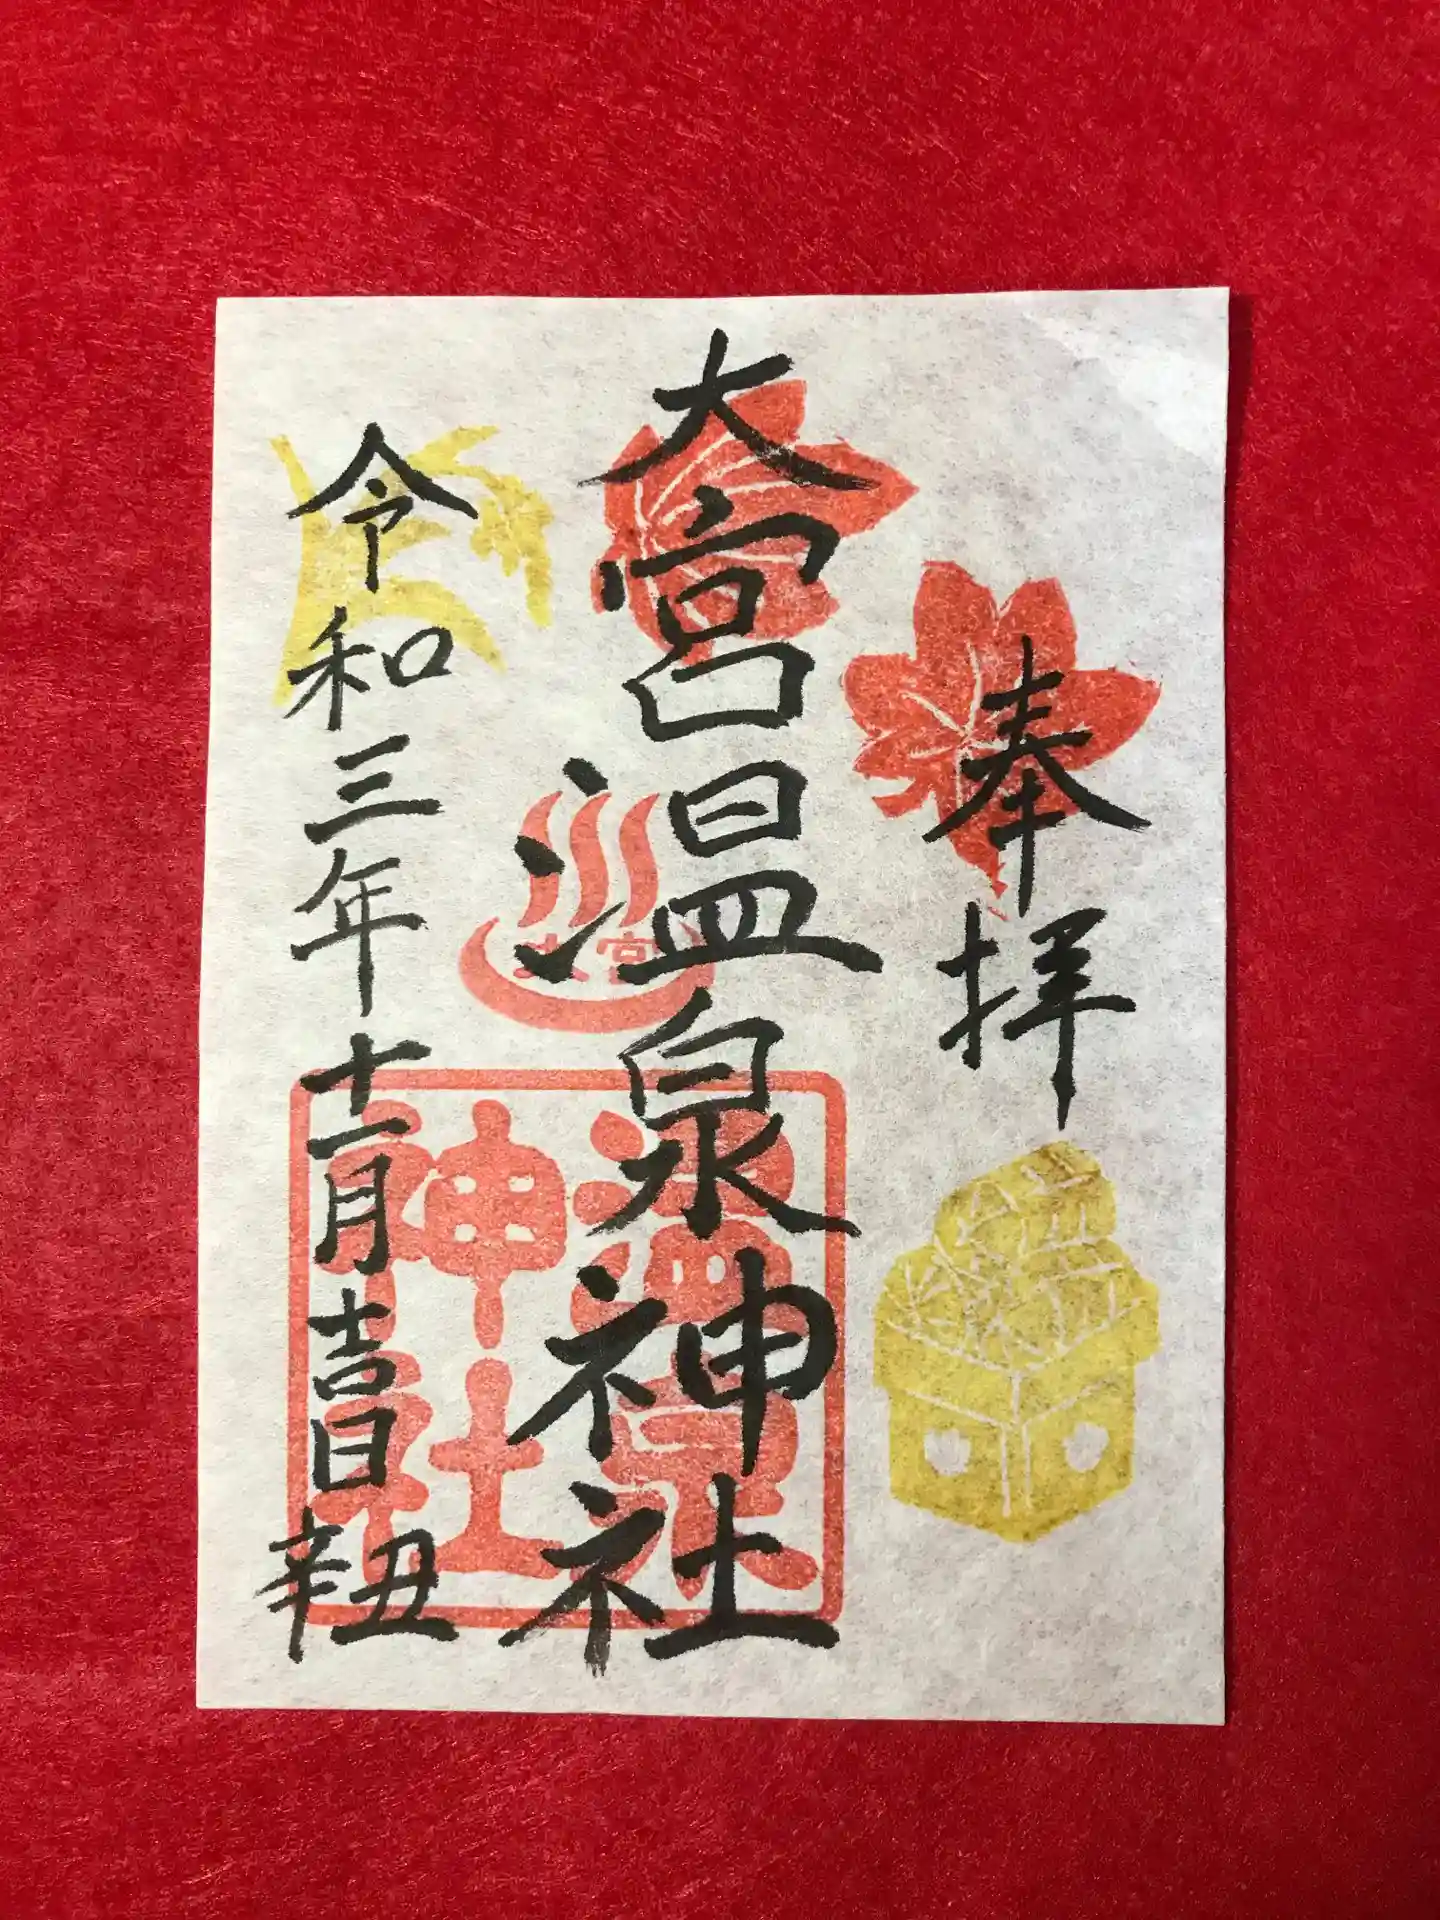 奉拝
大宮温泉神社
大宮
温泉
神社
令和三年十一月吉日
辛丑